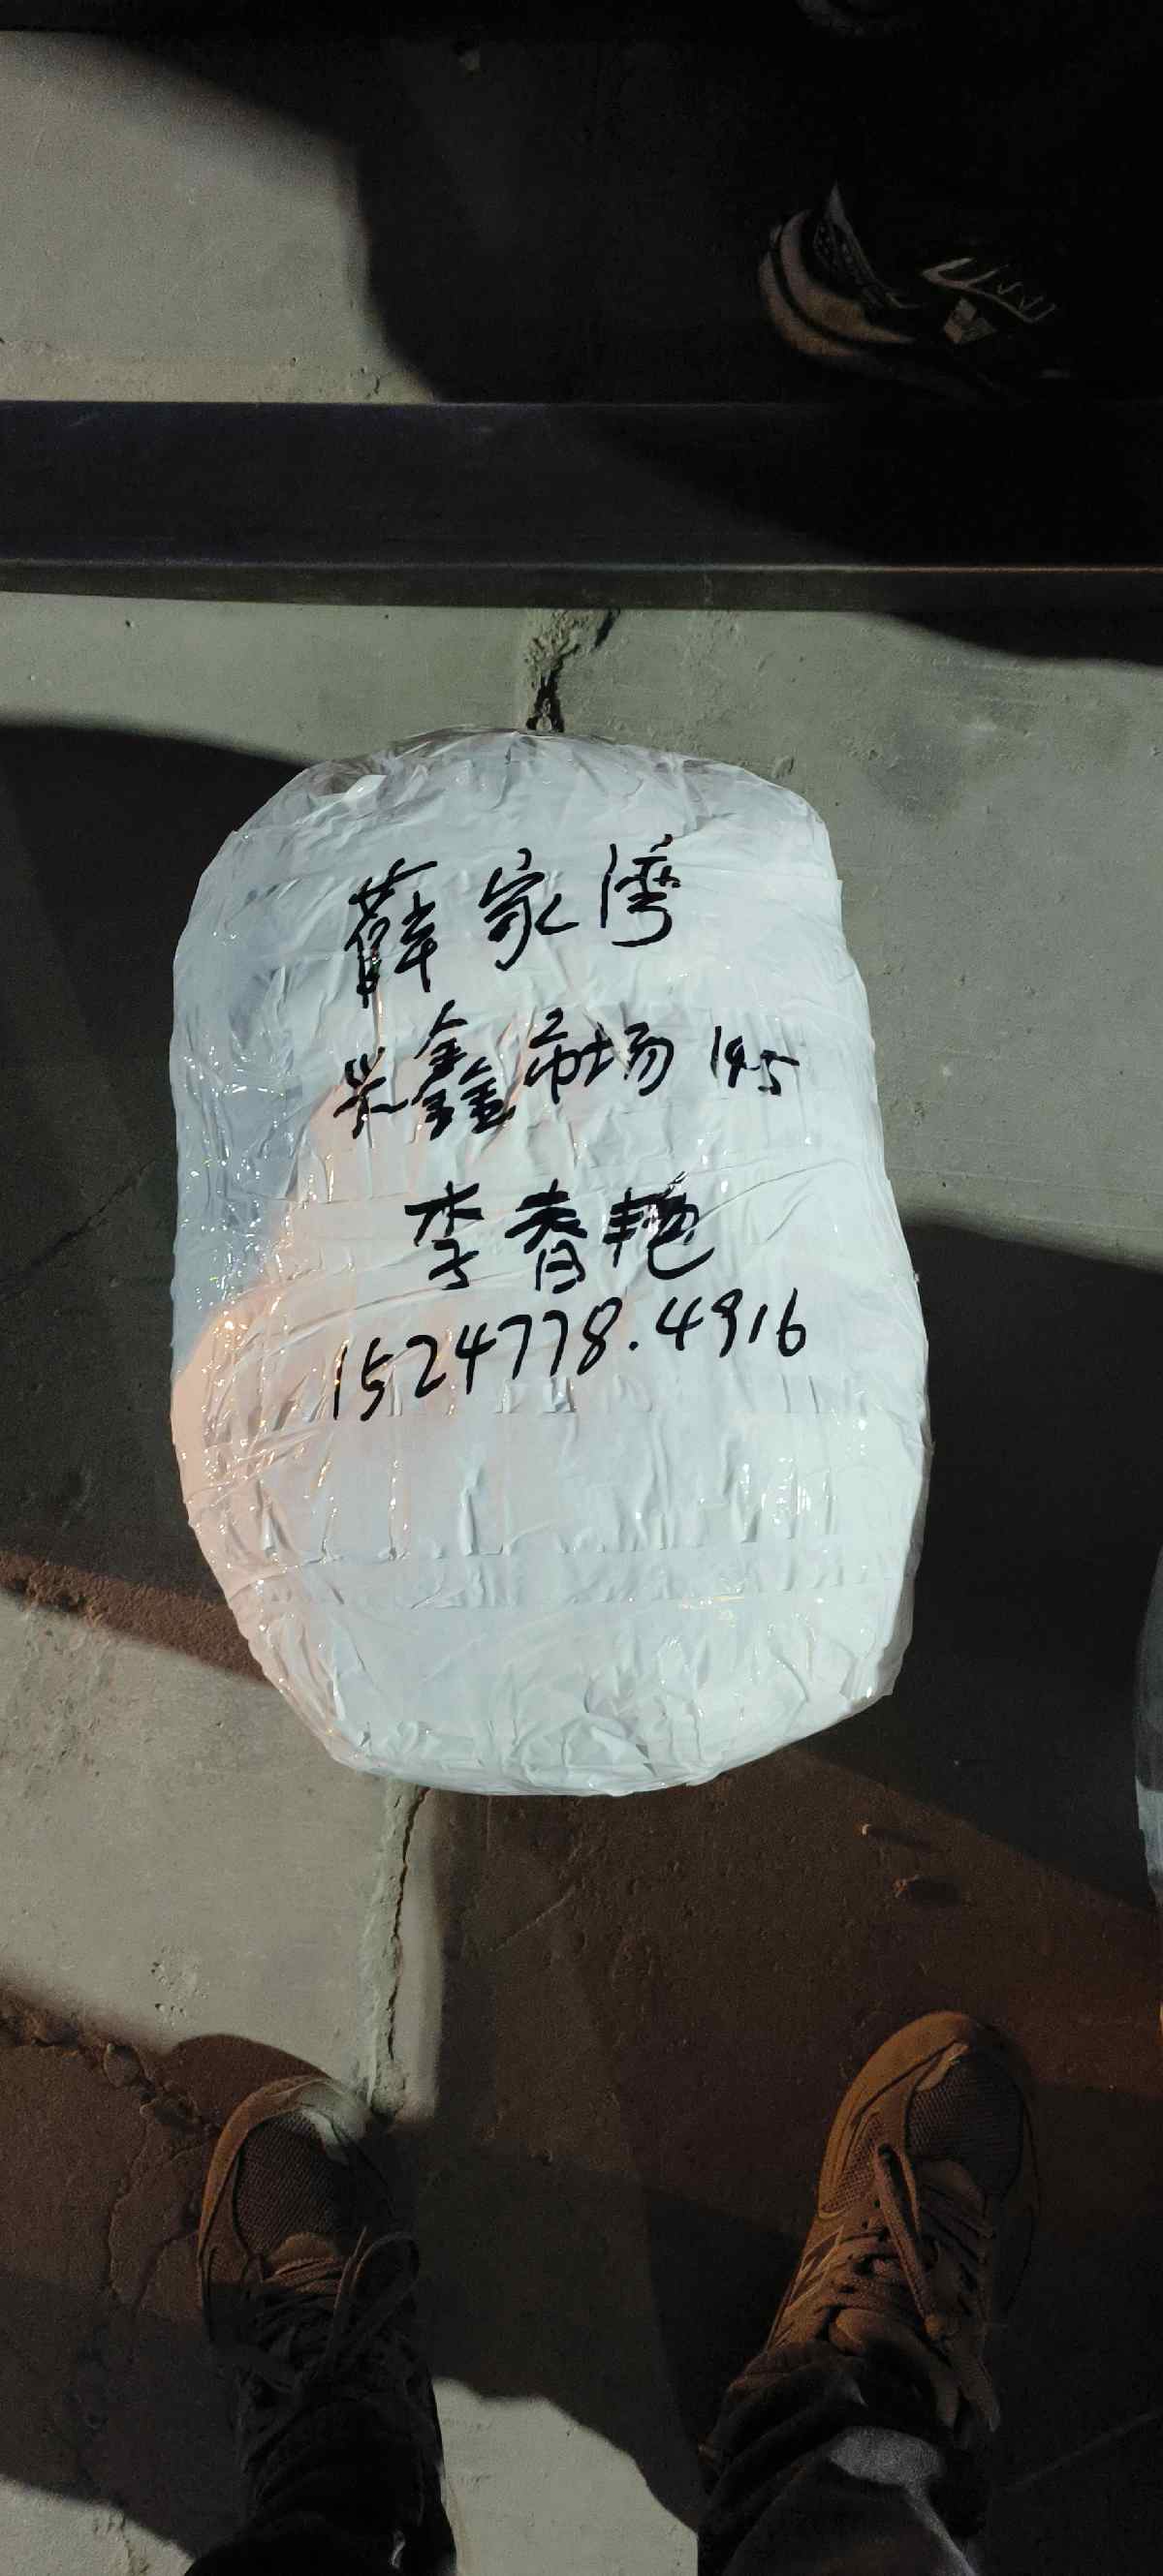 薛家湾
兴鑫市场 145
李春艳
1524778.4916